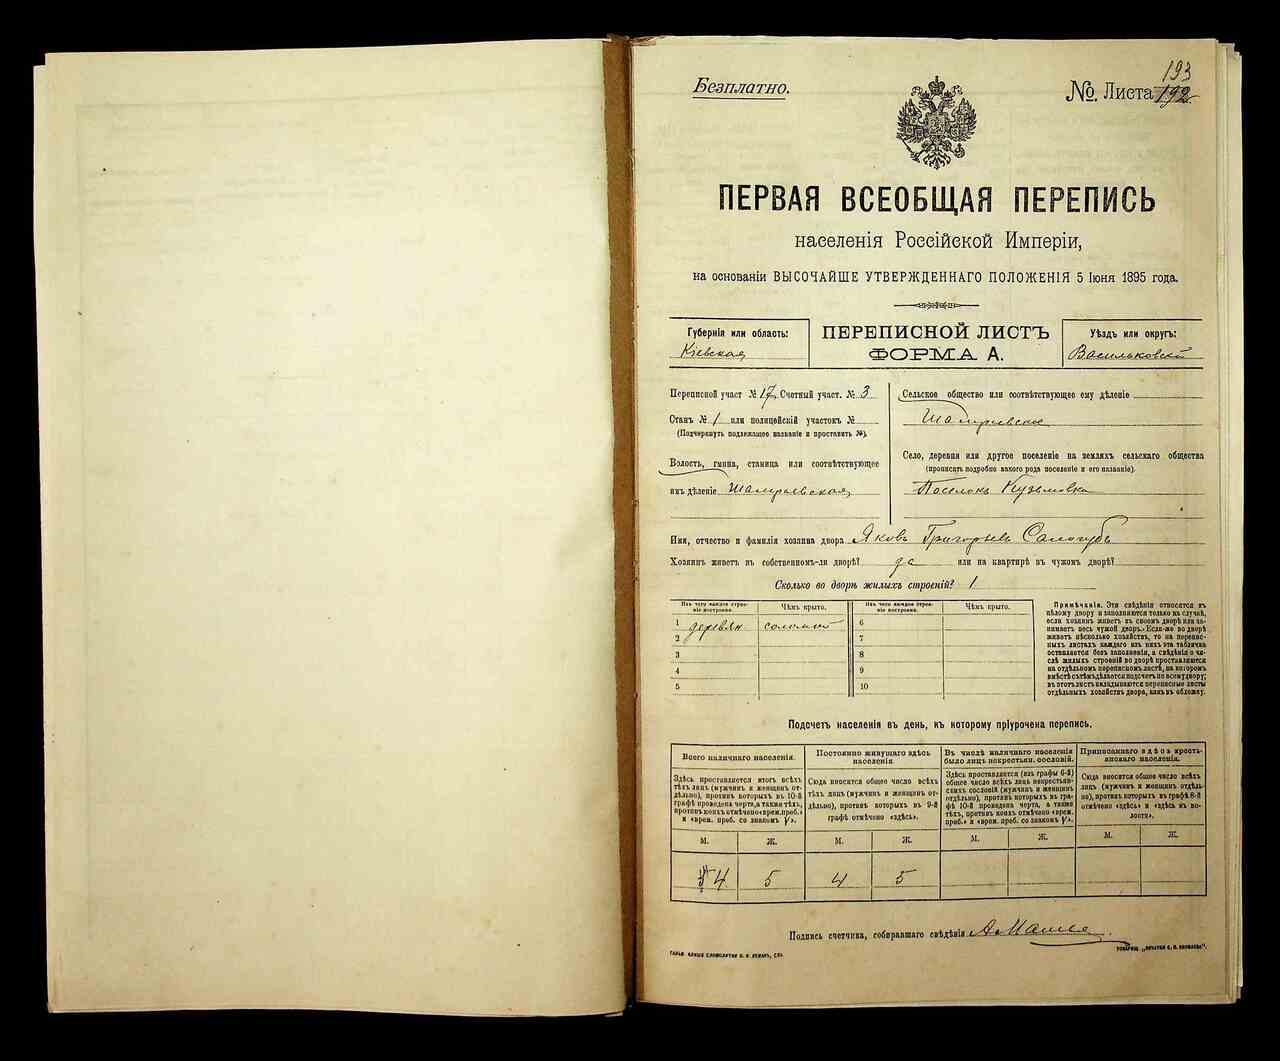 Безплатно.
193
№. Листа 192
ПЕРВАЯ ВСЕОБЩАЯ ПЕРЕПИСЬ
населенія Россійской Имперіи,
на основаніи ВЫСОЧАЙШЕ УТВЕРЖДЕННАГО ПОЛОЖЕНІЯ 5 Іюня 1895 года.
Губернія или область:
Кіевская
ПЕРЕПИСНОЙ ЛИСТЪ
ФОРМА А.
Уѣздъ или округъ:
Васильковскій
Переписной участ № 17, Счетный участ. № 3
Станъ № 1 или полицейскій участокъ №
(Подчеркнуть подлежащее названіе и проставить №).
Волость, гмина, станица или соотвѣтствующее
имъ дѣленіе Шамраевская
Сельское общество или соотвѣтствующее ему дѣленіе
Шамраевское
Село, деревня или другое поселеніе на земляхъ сельскаго общества
(прописать подробно какого рода поселеніе и его названіе).
Поселокъ Кузьмовка
Имя, отчество и фамилія хозяина двора Яковъ Григорьевъ Салогубъ
Хозяинъ живетъ въ собственномъ-ли дворѣ? да или на квартирѣ въ чужомъ дворѣ?
Сколько во дворѣ жилыхъ строеній? 1
Изъ чего каждое строе-
ніе построено.
Чѣмъ крыто.
1 деревян. соломой
2
3
4
5
Изъ чего каждое строе-
ніе построено.
Чѣмъ крыто.
6
7
8
9
10
Примѣчанія. Эти свѣдѣнія относятся къ
цѣлому двору и заполняются только въ случаѣ,
если хозяинъ живетъ въ своемъ дворѣ или за-
нимаетъ весь чужой дворъ. Если-же во дворѣ
живетъ нѣсколько хозяйствъ, то на перепис-
ныхъ листахъ каждаго изъ нихъ эта табличка
оставляется безъ заполненія, а свѣдѣнія о чи-
слѣ жилыхъ строеній во дворѣ проставляются
на отдѣльномъ переписномъ листѣ, на которомъ
вмѣстѣ съ тѣмъ дѣлается подсчетъ по всему двору;
въ этотъ листъ вкладываются переписные листы
отдѣльныхъ хозяйствъ двора, какъ въ обложку.
Подсчетъ населенія въ день, къ которому пріурочена перепись.
Всего наличнаго населенія.
Здѣсь проставляется итогъ всѣхъ
тѣхъ лицъ (мужчинъ и женщинъ от-
дѣльно), противъ которыхъ въ 10-й
графѣ проведена черта, а также тѣхъ,
противъ коихъ отмѣчено «врем. проб.»
и «врем. проб. со знакомъ V».
М. Ж.
4 5
Постоянно живущаго здѣсь
населенія.
Сюда вносится общее число всѣхъ
тѣхъ лицъ (мужчинъ и женщинъ от-
дѣльно), противъ которыхъ въ 9-й
графѣ отмѣчено «здѣсь».
М. Ж.
4 5
Въ числѣ наличнаго населенія
было лицъ некрестьян. сословій.
Здѣсь проставляется (изъ графы 6-й)
общее число всѣхъ лицъ некрестьян-
скихъ сословій (мужчинъ и женщинъ
отдѣльно), противъ которыхъ въ гра-
фѣ 10-й проведена черта, а также
тѣхъ, противъ коихъ отмѣчено «врем.
проб.» и «врем. проб. со знакомъ V».
М. Ж.
Приписаннаго здѣсь кресть-
янскаго населенія.
Сюда вносится общее число всѣхъ
лицъ (мужчинъ и женщинъ отдѣль-
но), противъ которыхъ въ графѣ 8-й
отмѣчено «здѣсь» и «здѣсь въ во-
лости».
М. Ж.
Подпись счетчика, собиравшаго свѣдѣнія